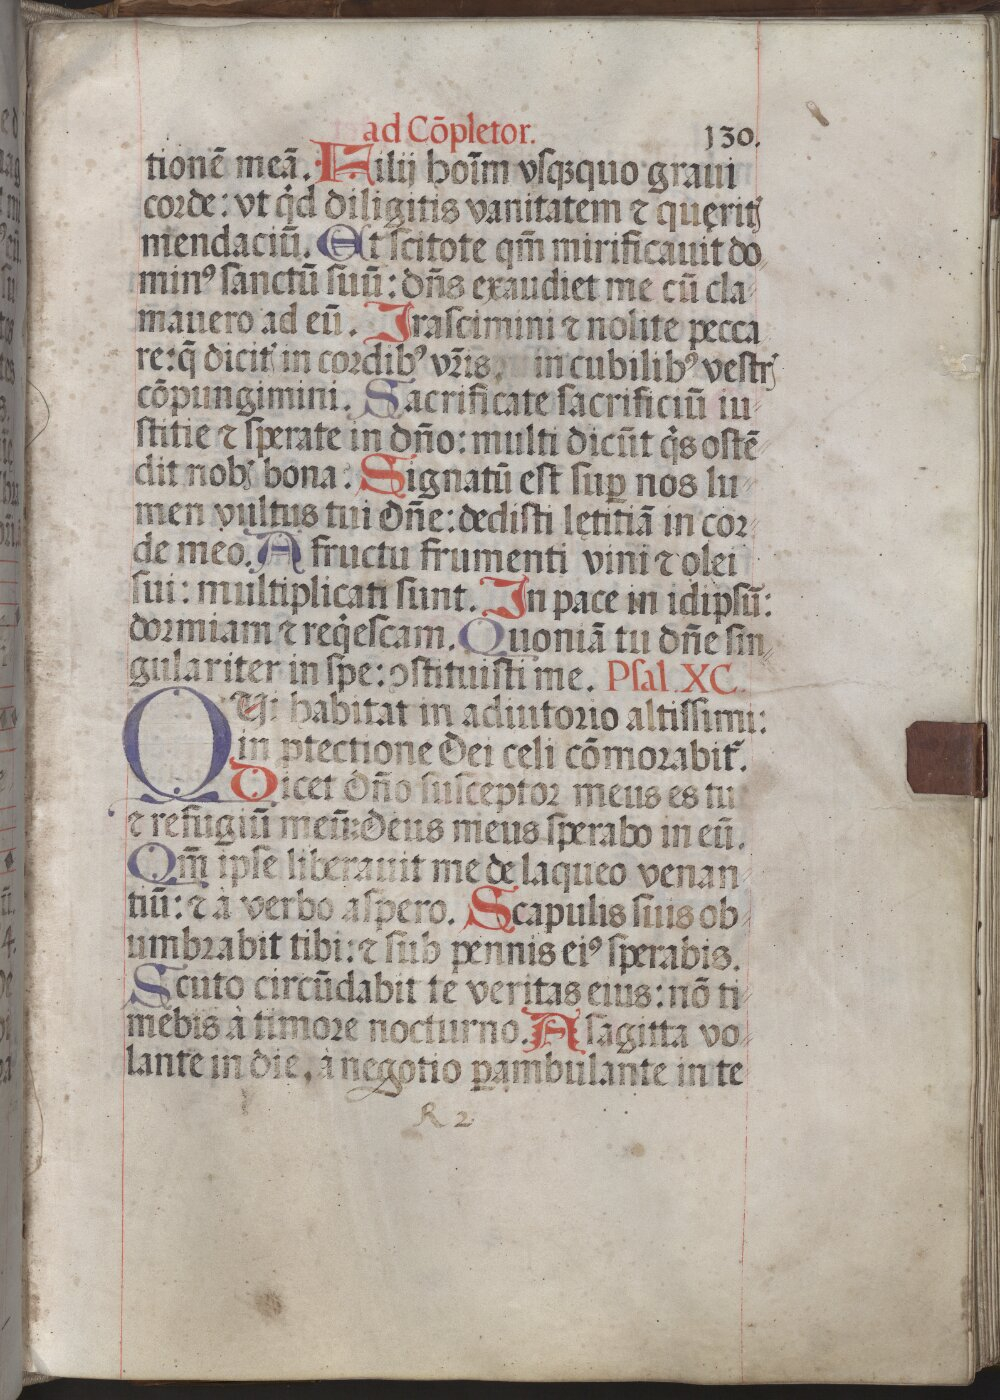 ad Cõpletor. 130.
tionẽ meã. Filij hoĩm vsqꝫquo graui
corde: vt qd̾ diligitis vanitatem ⁊ quęritꝭ
mendaciũ. Et scitote qm̃ mirificauit do
minꝰ sanctũ suũ: dñs exaudiet me cũ cla
mauero ad eũ. Irascimini ⁊ nolite pecca
re: q̃ dicitꝭ in cordibꝰ vr̃is, in cubilibꝰ vestrꝭ
cõpungimini. Sacrificate sacrificiũ iu
stitie ⁊ sperate in dño: multi dicũt qͥs ostẽ
dit nobꝭ bona: Signatũ est suꝑ nos lu
men vultus tui dñe: dedisti lętitiã in cor
de meo. A fructu frumenti vini ⁊ olei
sui: multiplicati sunt. In pace in idipsũ:
dormiam ⁊ reqͥescam. Quoniã tu dñe sin
gulariter in spe: ꝯstituisti me. Psal. XC.
QUi habitat in adiutorio altissimi:
in ꝓtectione Dei celi cõmorabit᷑.
Dicet dño susceptor meus es tu
⁊ refugiũ meũ: Deus meus sperabo in eũ.
Qm̃ ipse liberauit me de laqueo venan
tiũ: ⁊ à verbo aspero. Scapulis suis ob
umbrabit tibi: ⁊ sub pennis eiꝰ sperabis.
Scuto circũdabit te veritas eius: nõ ti
mebis à timore nocturno. A sagitta vo
lante in die, à negotio ꝑambulante in te
R 2.